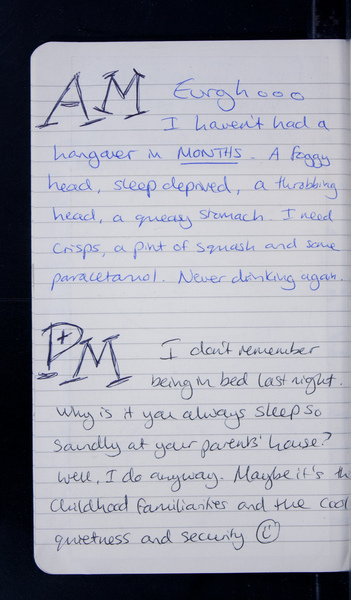 AM
Eurgh ooo
I haven't had a
hangover in MONTHS. A foggy
head, sleep deprived, a throbbing
head, a queasy stomach. I need
crisps, a pint of squash and some
paracetamol. Never drinking again.
PM
I don't remember
being in bed last night.
Why is it you always sleep so
soundly at your parents' house?
Well, I do anyway. Maybe it's th
childhood familiarities and the cool
quietness and security